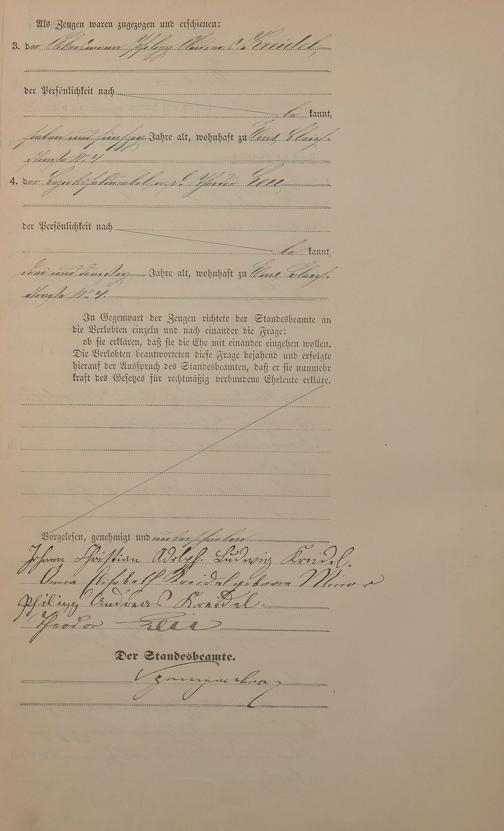 Als Zeugen waren zugezogen und erschienen:
3. der Philipp Andreas Kreidel,
der Persönlichkeit nach
be kannt,
sieben und fünfzig Jahre alt, wohnhaft zu
straße No 4
4. der Theodor
der Persönlichkeit nach
be kannt,
drei und zwanzig Jahre alt, wohnhaft zu
straße No 4.
In Gegenwart der Zeugen richtete der Standesbeamte an
die Verlobten einzeln und nach einander die Frage:
ob sie erklären, daß sie die Ehe mit einander eingehen wollen.
Die Verlobten beantworteten diese Frage bejahend und erfolgte
hierauf der Ausspruch des Standesbeamten, daß er sie nunmehr
kraft des Gesetzes für rechtmäßig verbundene Eheleute erkläre.
Vorgelesen, genehmigt und unterschrieben
Johann Christian Adolph Ludwig Kreidel.
Anna Elisabeth Kreidel geborene Minor
Philipp Andreas Kreidel.
Theodor
Der Standesbeamte.